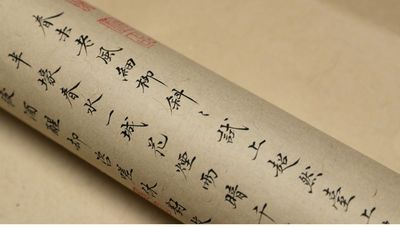 春未老風細柳斜〻試上超然臺上
半壕春水一城花煙雨暗千
酒醒却咨嗟休對故